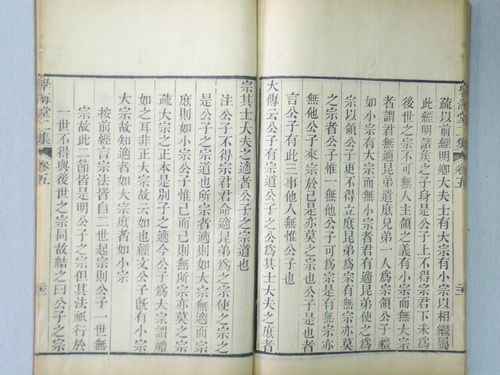 疏以前經明卿大夫士有大宗有小宗以相繼屬
此經明諸侯之子身是公子上不得宗君下未爲
後世之宗不可無人主領之義有小宗而無大宗
者謂君無適昆弟遣庶兄弟一人爲宗領公子禮
如小宗有大宗而無小宗者君有適昆弟使之爲
宗以領公子更不得立庶昆弟爲宗有無宗亦莫
之宗者公子惟一無他公子可爲宗是有無宗亦
無他公子來宗於己是亦莫之宗也公子是也者
言公子有此三事他人無惟公子也
大傳云公子有宗道公子之公爲其士大夫之庶者
學海堂二集 卷五
宗其士大夫之適者公子之宗道也
注公子不得宗君君命適昆弟爲之宗使之宗之
是公子之宗道也所宗者適則無適而宗
庶則如小宗公子惟已而已則無所宗亦莫之宗
疏大宗之正本是別子之適今公子爲大宗謂禮
如之耳非正大宗故云如也經文公子旣有小宗
大宗故知適者如大宗庶者如小宗
按前經言宗法皆自二世起宗則公子一世無
宗故此二節皆是明公子之宗但其法祇行於
一世不得與後世之宗同故結之曰公子之宗
學海堂二集 卷五